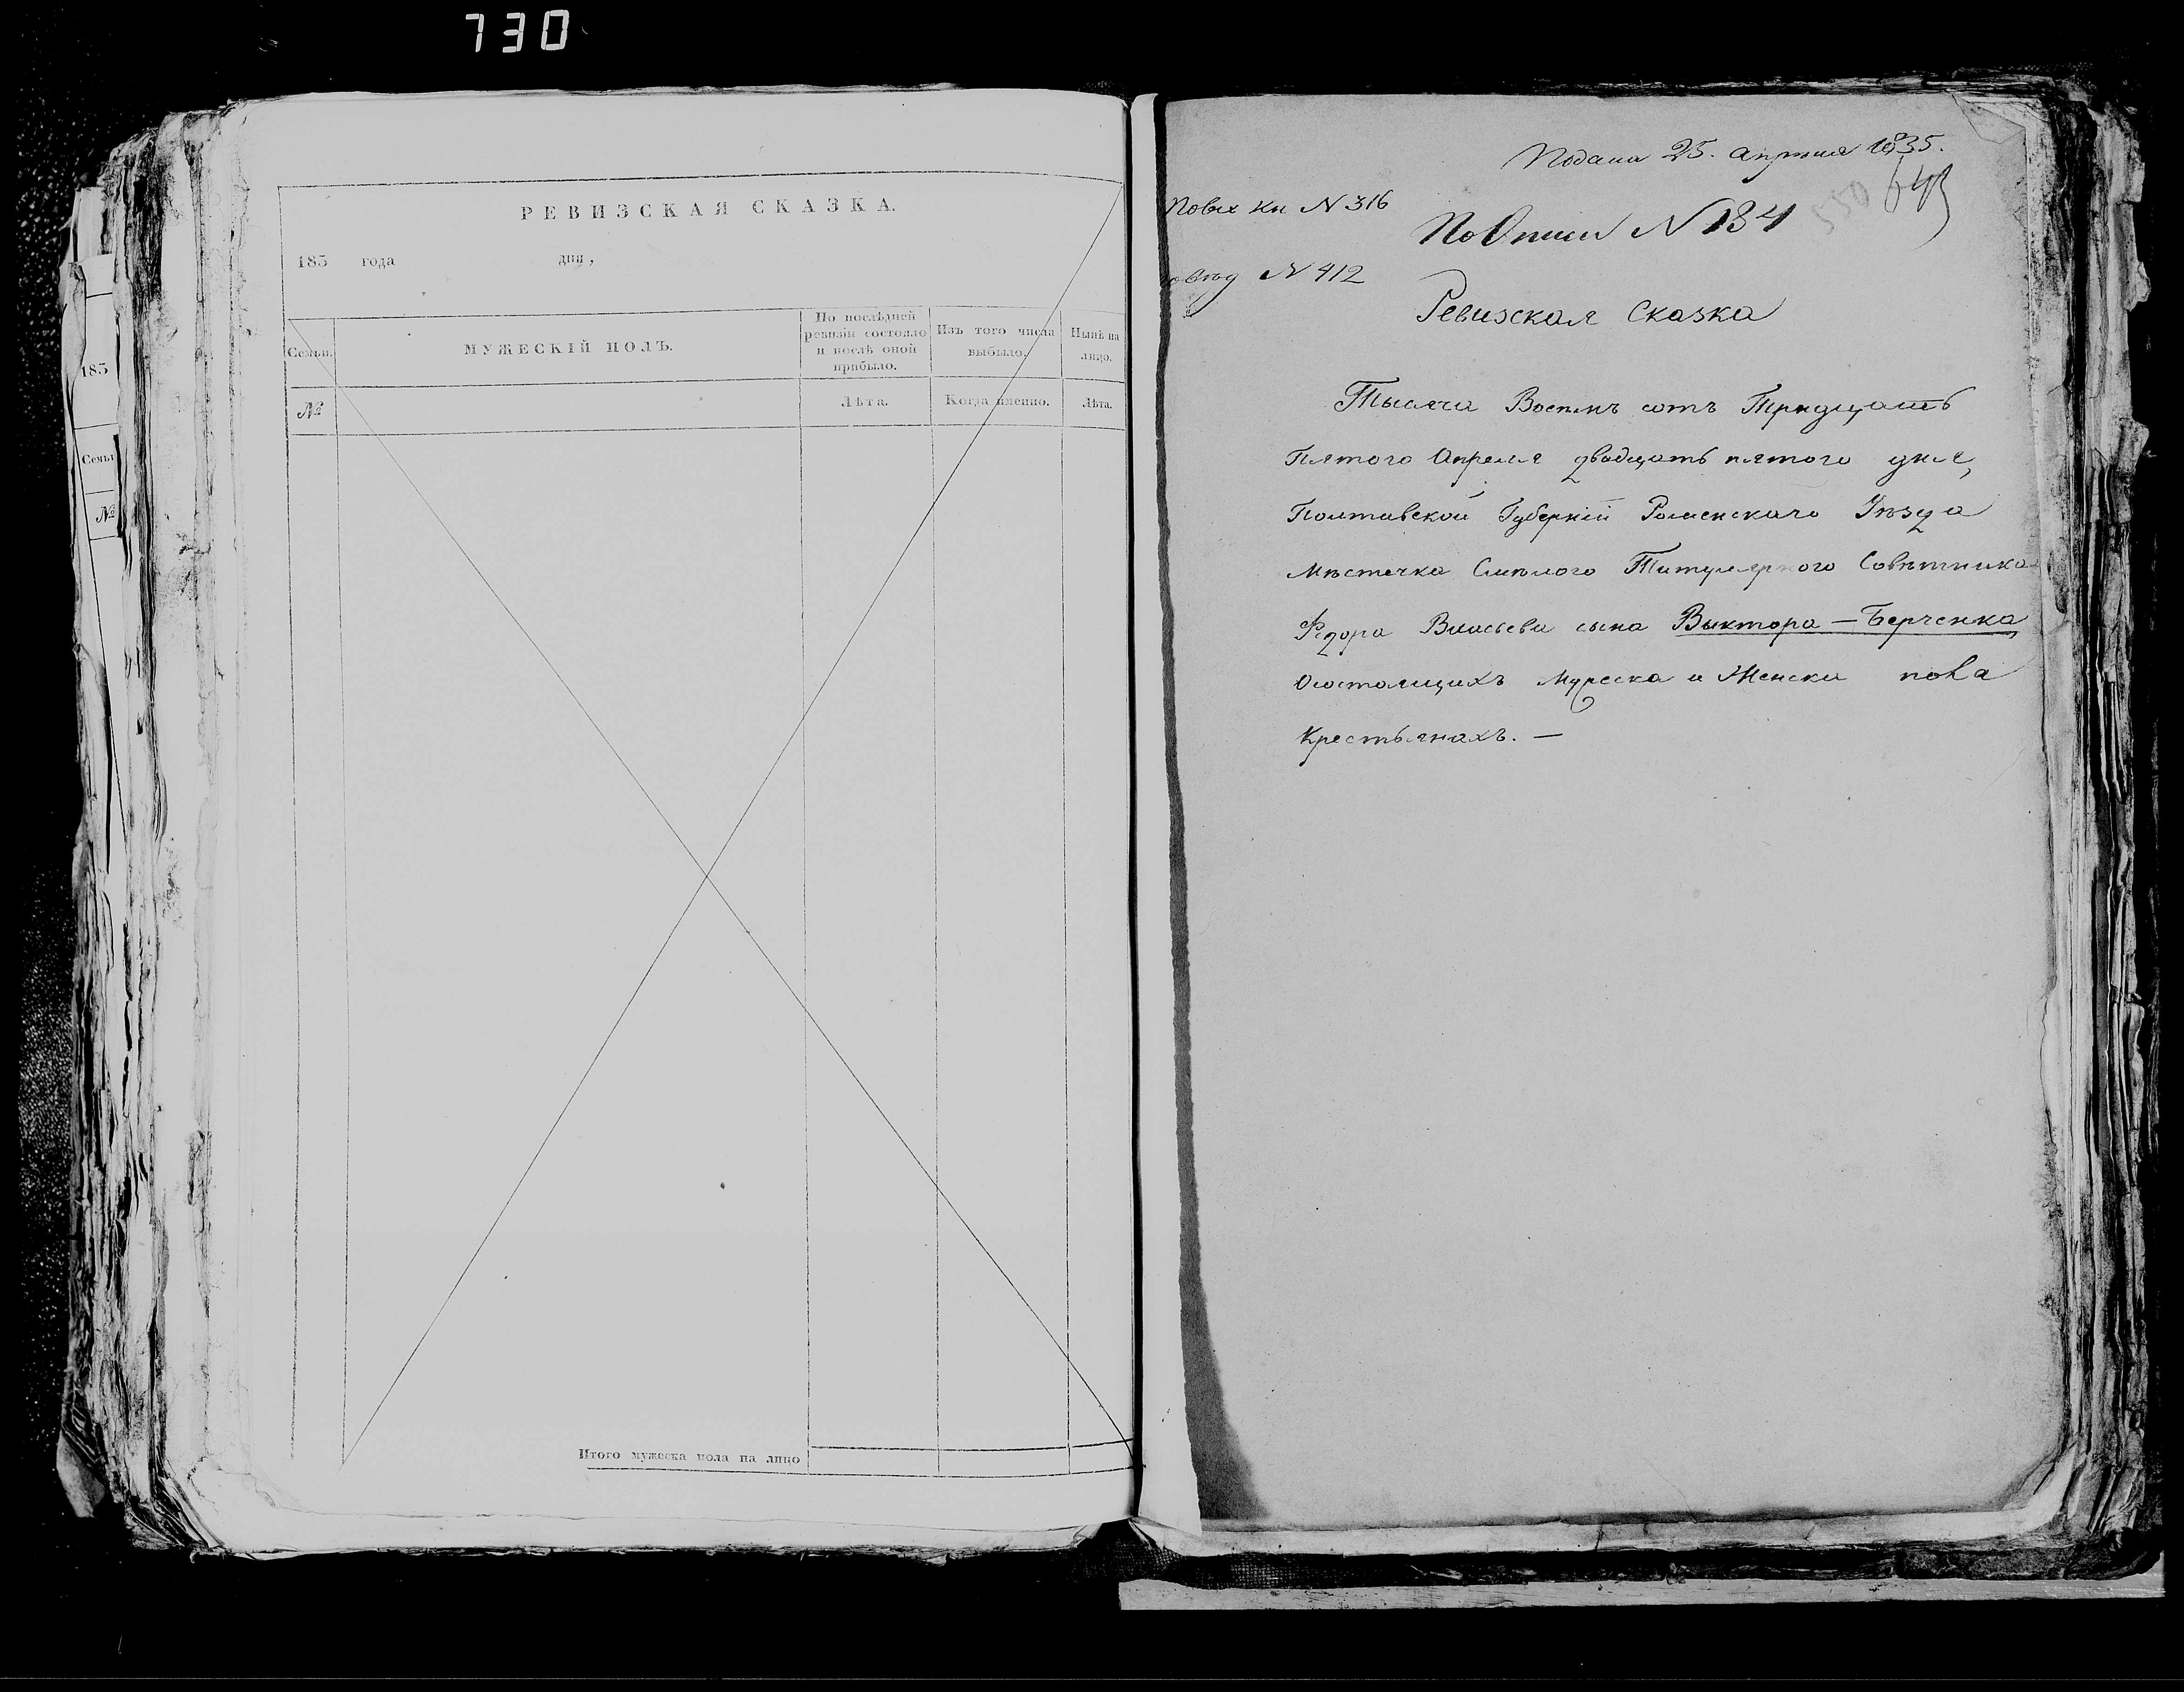 730
РЕВИЗСКАЯ СКАЗКА.
183 года дня,
Семьи.
МУЖЕСКІЙ ПОЛЪ.
По послѣдней
ревизіи состояло
и послѣ оной
прибыло.
Изъ того числа
выбыло.
Нынѣ на
лицо.
№
Лѣта.
Когда именно.
Лѣта.
Итого мужеска пола на лицо
183
Семьи
№
Подана 25. апрѣля 1835.
По вх кн N 316
643
550
По Описи N 134
N 412
Ревизская Сказка
Тысяча Восемъ сотъ Тридцать
Пятого Апреля двадцать пятого дня,
Полтавской Губерніи Роменскаго Уѣзда
Мѣстечка Смѣлого Титулярного Совѣтника
Федора Власьева сына Виктора — Берченка
Осостоящихъ Мужеска и Женска пола
Крестьянахъ. —